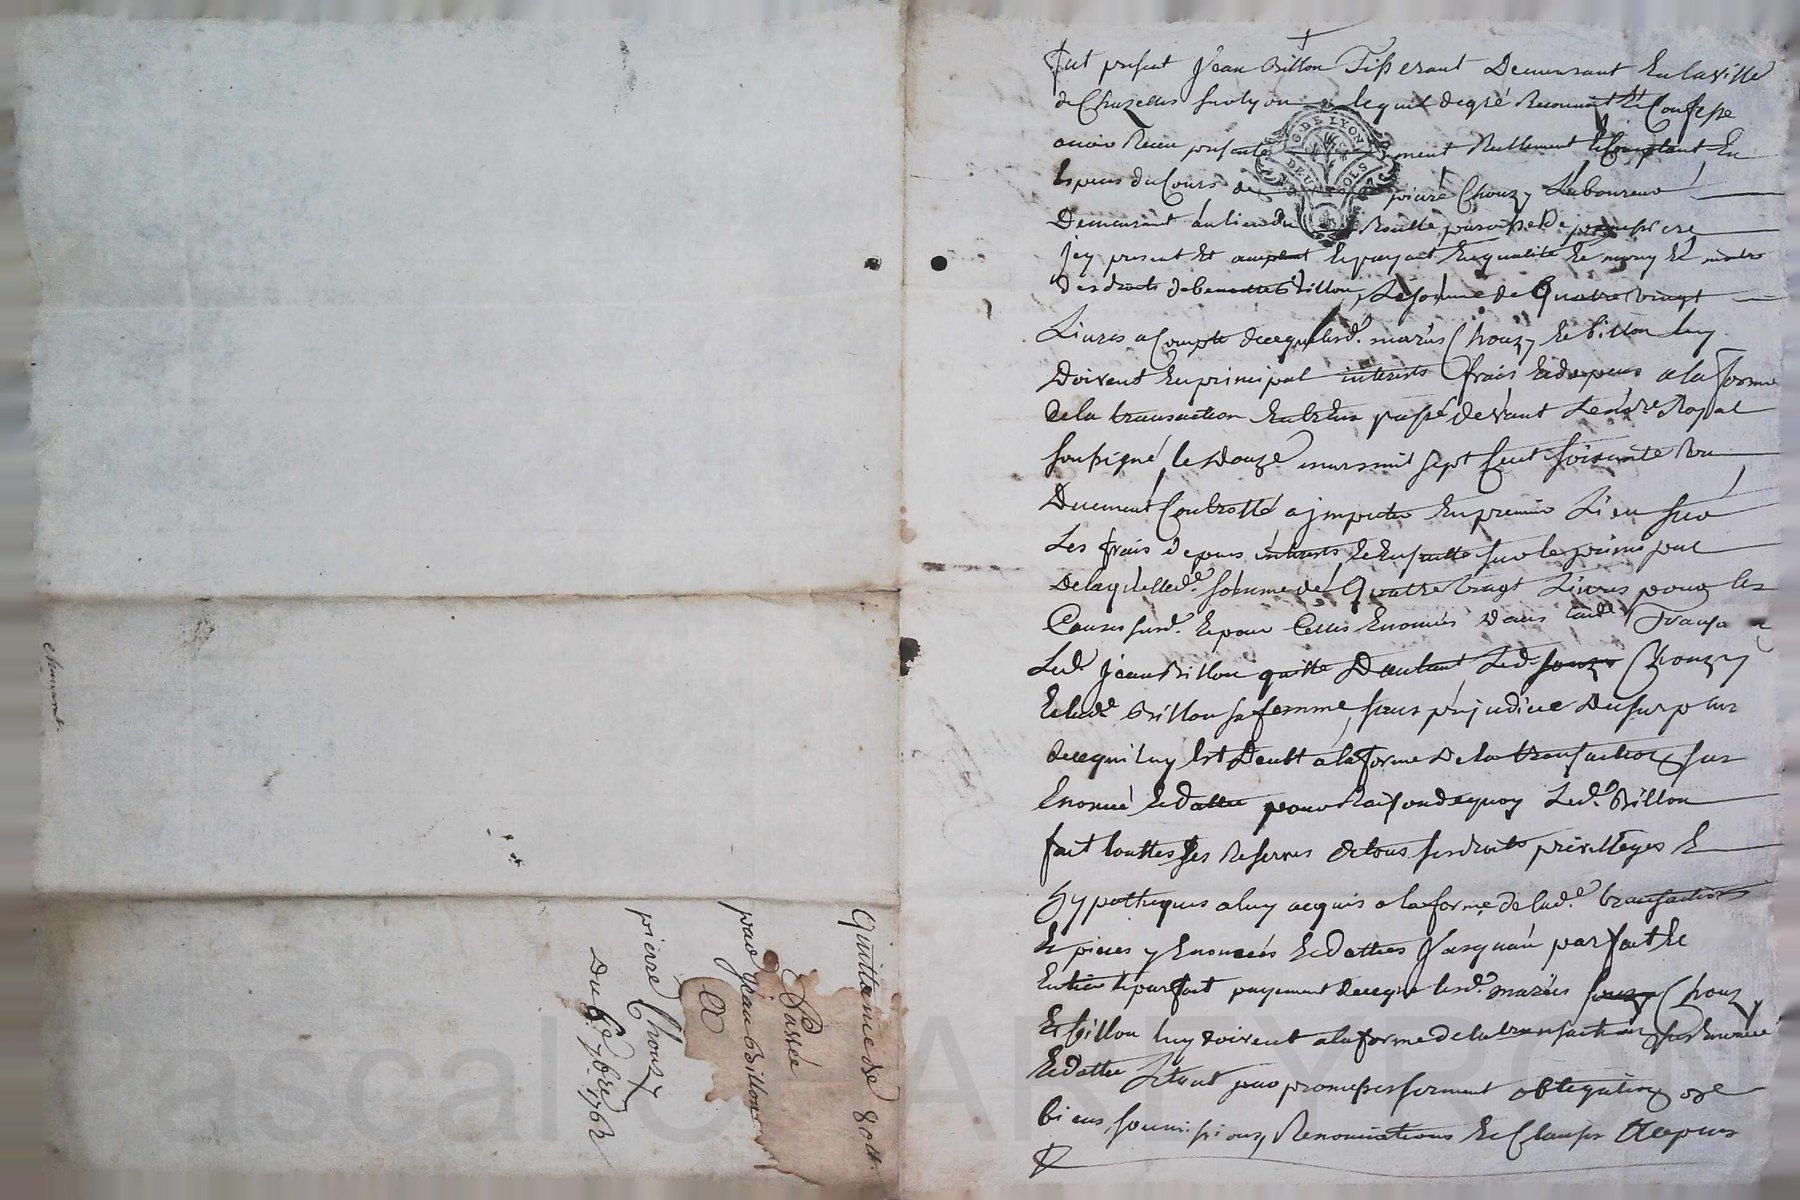 fut present Jean Billon Tisserant Demeurant En la ville
de Chazelles sur lyon lequel de gré Reconnoit Et Confesse
avoir Receu presentement Rellement Et Comptant En
Especes du Cours de pierre Chouzy Laboureur
Demeurant au lieu du paroisse De
Jcy present Et acceptant le payant En qualité de mary Et maitre
des droits de benoitte Billon, La somme de Quatre vingt
Livres a Compte de ce que lesd. mariés Chouzy Et billon luy
Doivent En principal interests frais Et depens a la forme
de la transaction Entr'Eux passé devant Le no.re Royal
soussigné le douze mars mil sept Cent soixante Un
Duement Controllé a jmputer En premier Lieu sur
Les frais depens interests Et Ensuitte sur le principal
De laquelle d.e somme de Quatre vingt Livres pour les
Causes susd. Et pour Celles Enoncées Dans lad.e Transa
Led. Jean Billon quitte D'autant Led. Chouzy
Et lad.e Billon sa femme, sans préjudice Du surplus
de ce qui luy Est Deubt a la forme De la transaction sus
Enoncé Et datée pour Raison de quoy Led. Billon
fait touttes ses Reserves de tous ses droits privilleges Et
hypotheques a luy acquis a la forme de lad.e transaction
Et pieces y Enoncées Et dattées Jusqu'au parfait Et
Entier Et parfait payement de ce que lesd. mariés Chouzy
Et billon luy doivent a la forme de la transaction sus Enoncée
Et dattée Car ainsy par promesses serment obligation de
biens, soumissions, Renonciations Et Clauses Requises
Quittance de 80 tt
Passée
par Jean Billon
A
pierre Chouzy
Du 6.e 7bre 1762